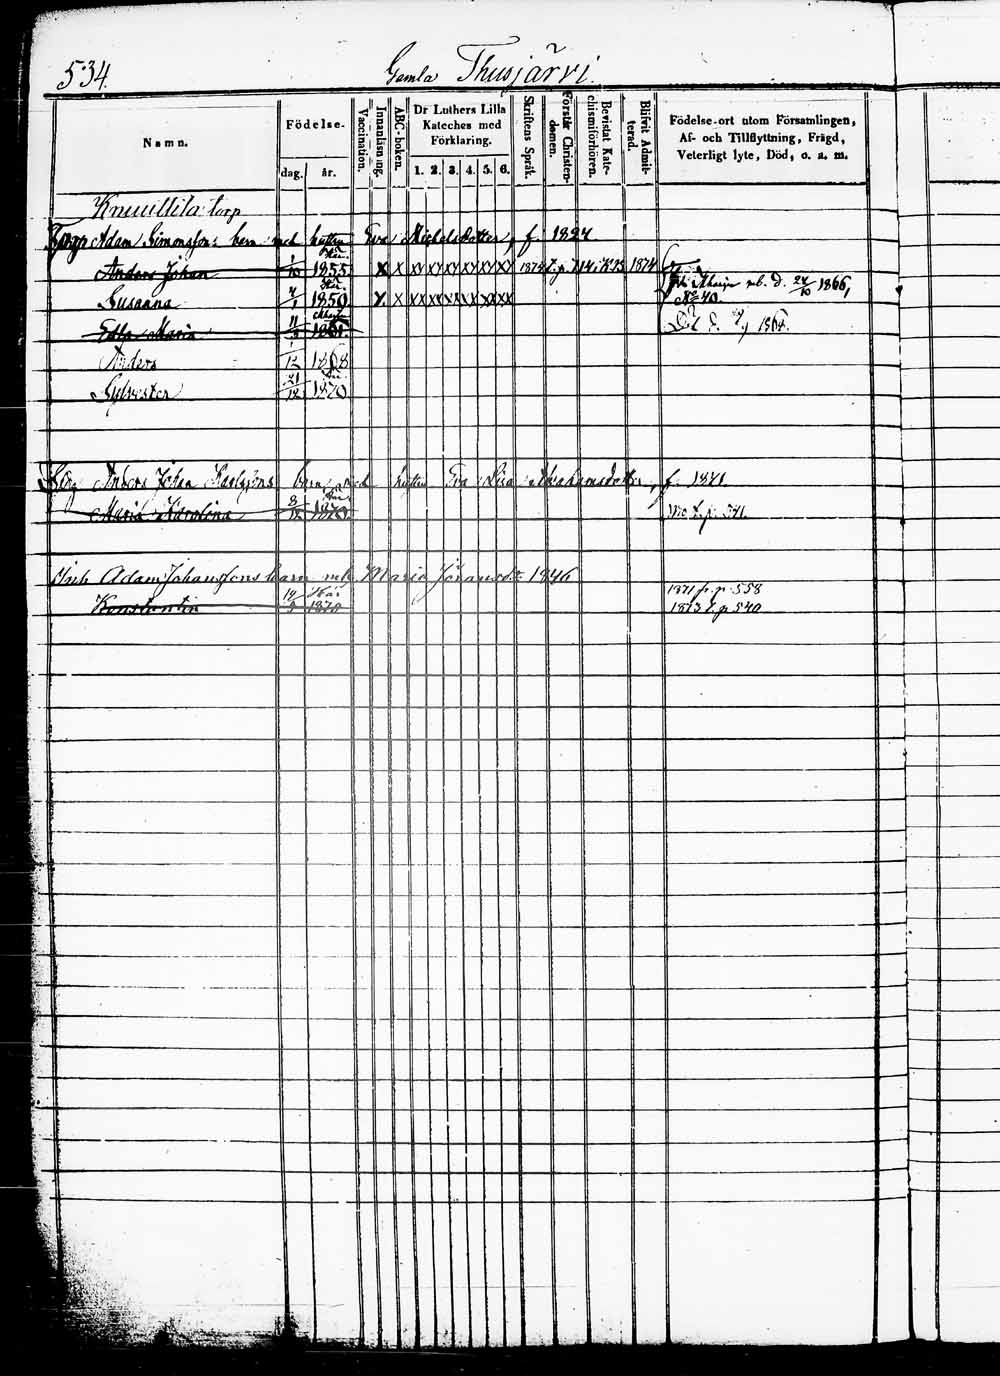 534.
Gamla Thusjärvi.
Namn.
Födelse-
dag. år.
Vaccination.
Innanläsning.
ABC-boken.
Dr Luthers Lilla
Kateches med
Förklaring.
1. 2. 3. 4. 5. 6.
Skriftens Språk.
Förstår Christen-
domen.
Bevistat Kate-
chismiförhören.
Blifvit Admit-
terad.
Födelse-ort utom Församlingen,
Af- och Tillflyttning, Frägd,
Veterligt lyte, Död, o. a. m.
Knuutila torp
Adam Simonssons barn med hustrun Eva Michelsdotter, f. 1827.
Anders Johan 1/10 1855 X X XX XX XX XX XX XX 1874 1874
Susanna 1850 X X XX XX XX XX XX XX mb. d. 24/10 1866, No 40.
Edla Maria 1861. 1868.
Anders 1/12 1868
Sylvester 21/12 1870
Anders Johan Karlssons barn med hustrun Eva Lisa Abrahamsdotter, f. 1841.
Maria Karolina 8/12 541.
Inh Adam Johanssons barn m. h. Maria Johansdr 1846
Konstantin 1871 fr. p. 558
1873 t. p 540